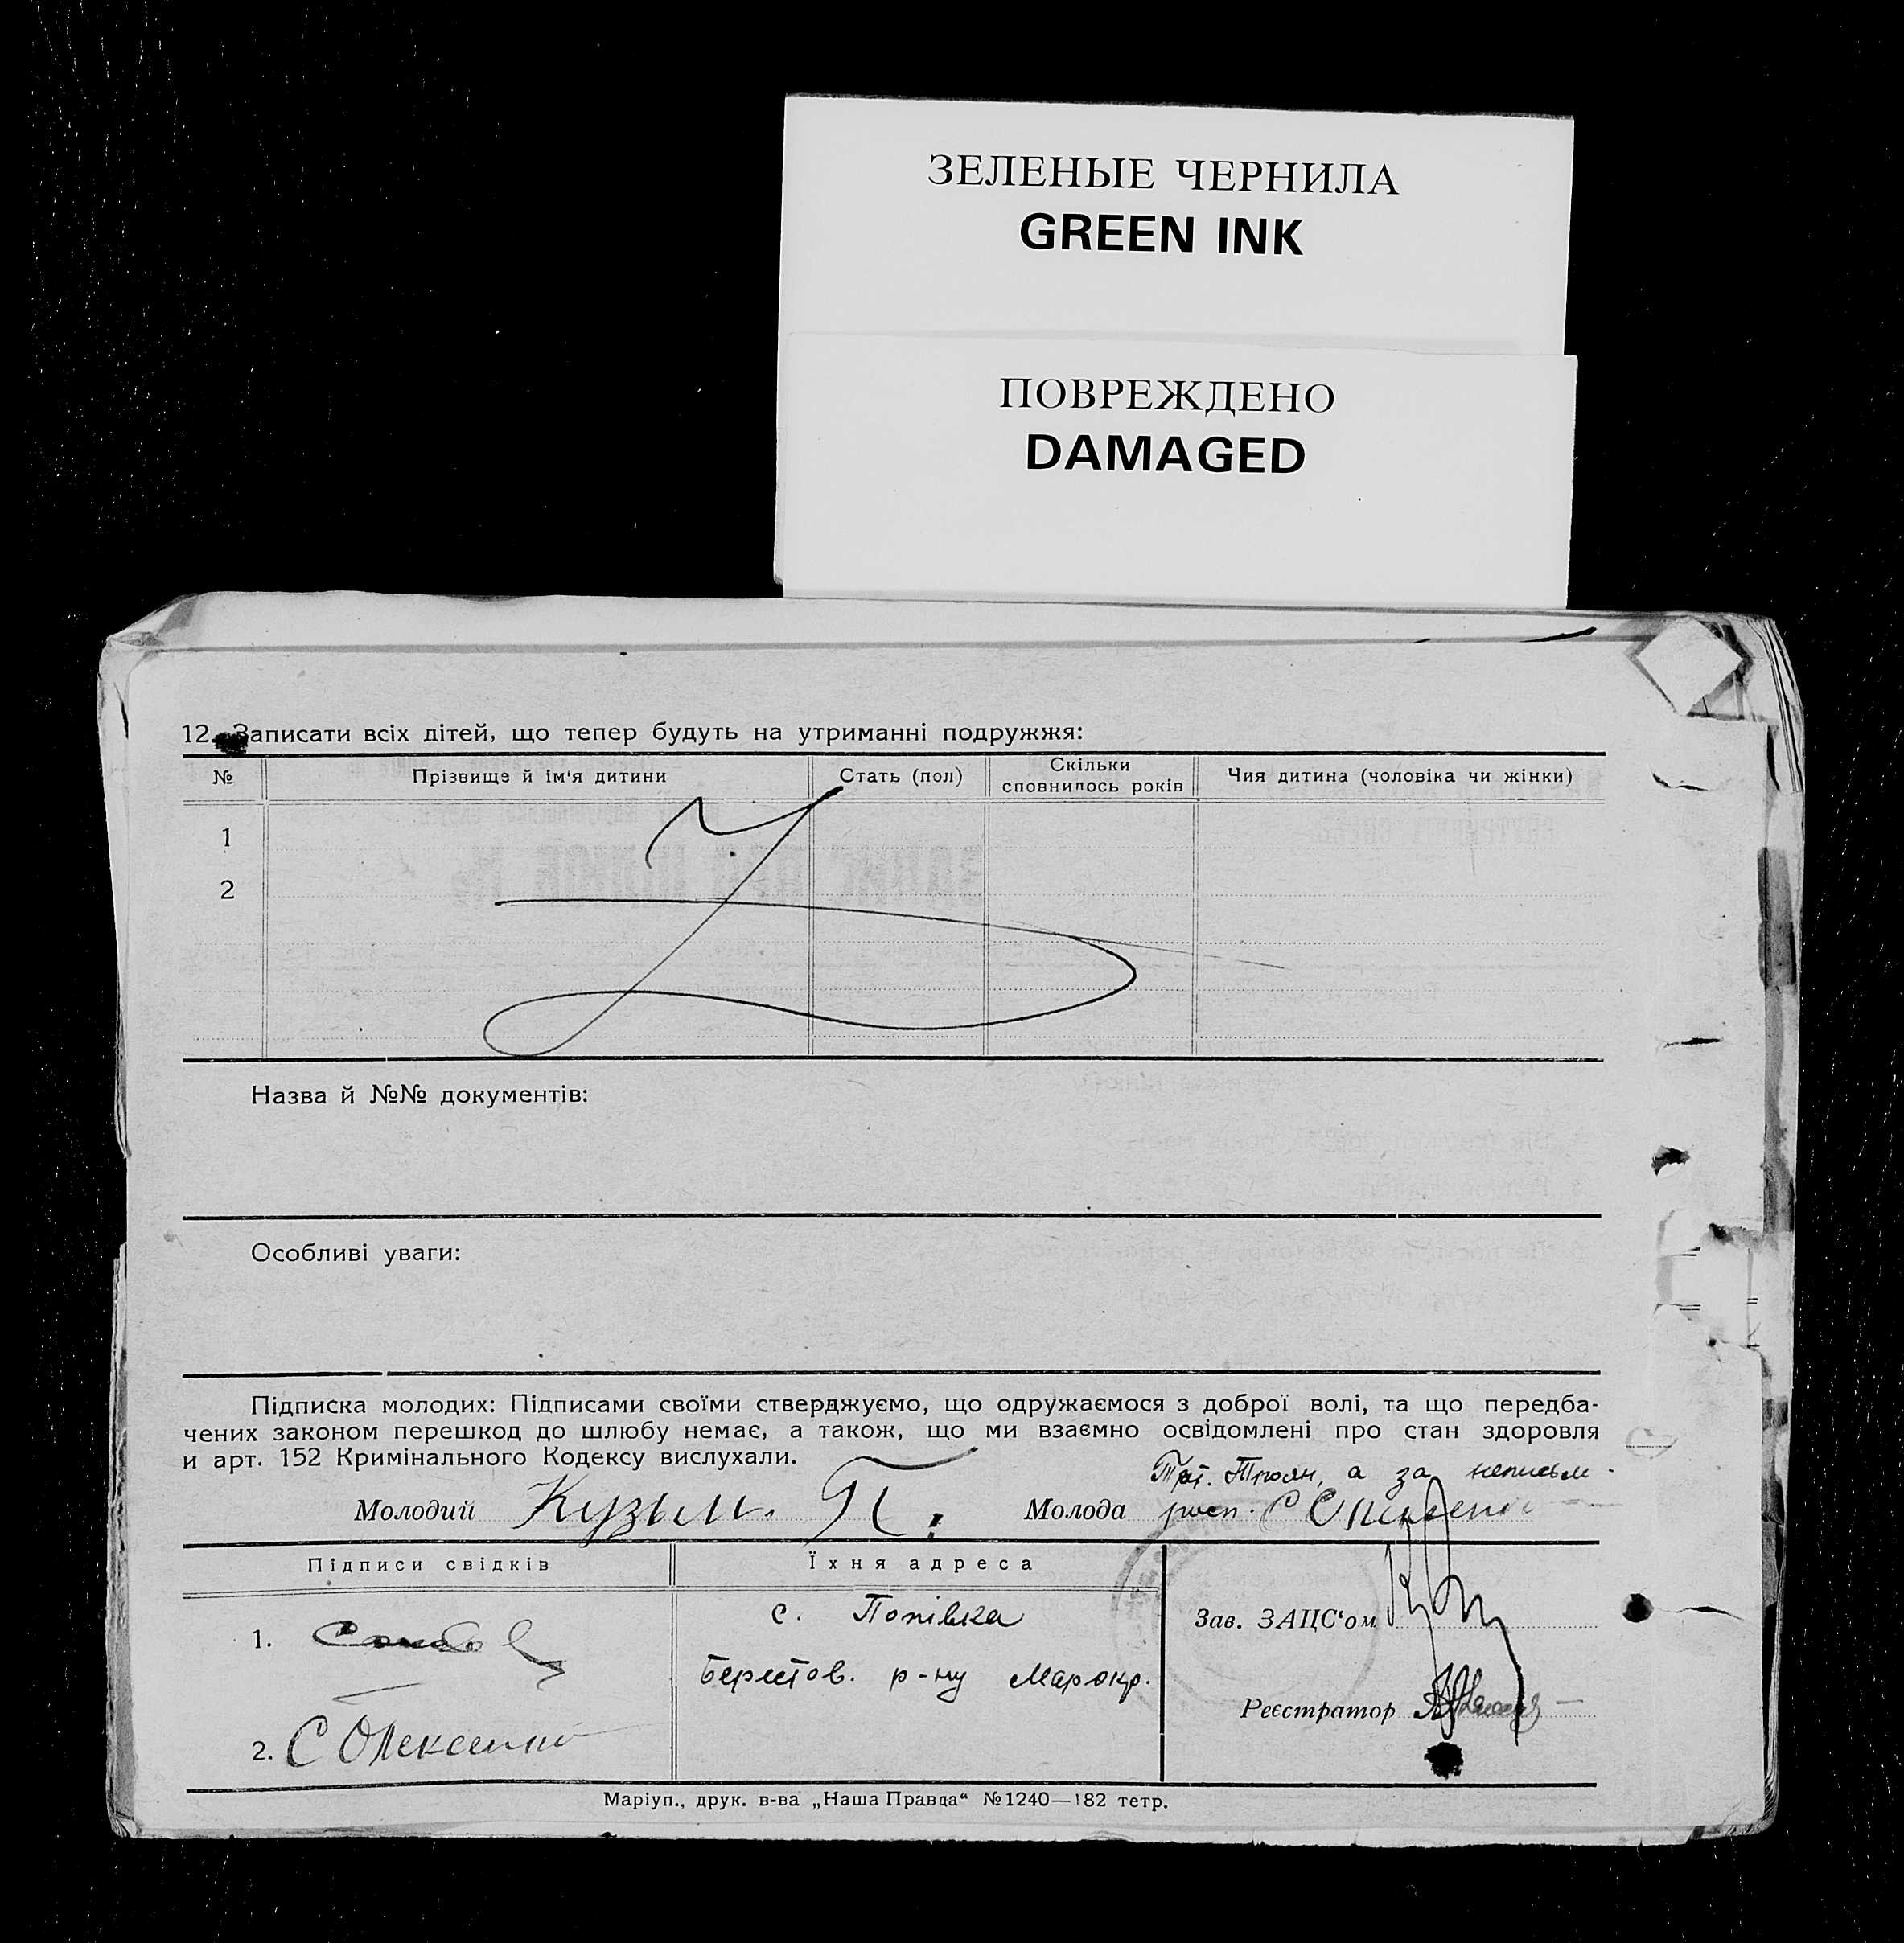 ЗЕЛЕНЫЕ ЧЕРНИЛА
GREEN INK
ПОВРЕЖДЕНО
DAMAGED
12. Записати всіх дітей, що тепер будуть на утриманні подружжя:
№ Прізвище й ім'я дитини Стать (пол) Скільки сповнилось років Чия дитина (чоловіка чи жінки)
1
2
Назва й №№ документів:
Особливі уваги:
Підписка молодих: Підписами своїми стверджуємо, що одружаємося з доброї волі, та що передба-
чених законом перешкод до шлюбу немає, а також, що ми взаємно освідомлені про стан здоровля
и арт. 152 Кримінального Кодексу вислухали.
а за неписьм.
Молодий Кузьм. П. Молода росп. С
Підписи свідків Їхня адреса
с. Попівка
1.
Зав. ЗАЦС'ом
Берестов. р-ну Марокр.
Реєстратор
2. С Олексенко
Маріуп., друк. в-ва „Наша Правда" № 1240—182 тетр.